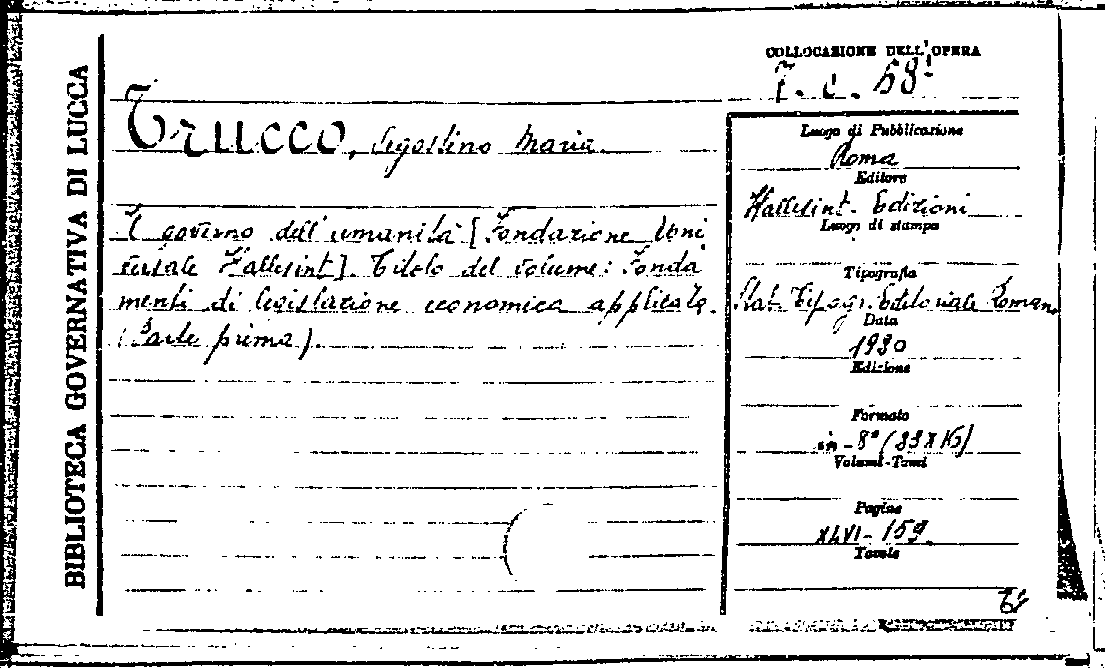 BIBLIOTECA GOVERNATIVA DI LUCCA
COLLOCAZIONE DELL'OPERA
7. c. 68
Trucco, Agostino Maria.
Il governo dell'umanità [Fondazione Uni
versale Hallesint]. Titolo del volume: Fonda
menti di legislazione economica applicata.
(Parte prima).
Luogo di Pubblicazione
Roma
Editore
Hallesint. Edizioni
Luogo di stampa
Tipografia
Stab. Tipogr. Editoriale Romano
Data
1930
Edizione
Formato
in-8° (23x16)
Volumi-Tomi
Pagine
XLVI-159.
Tavole